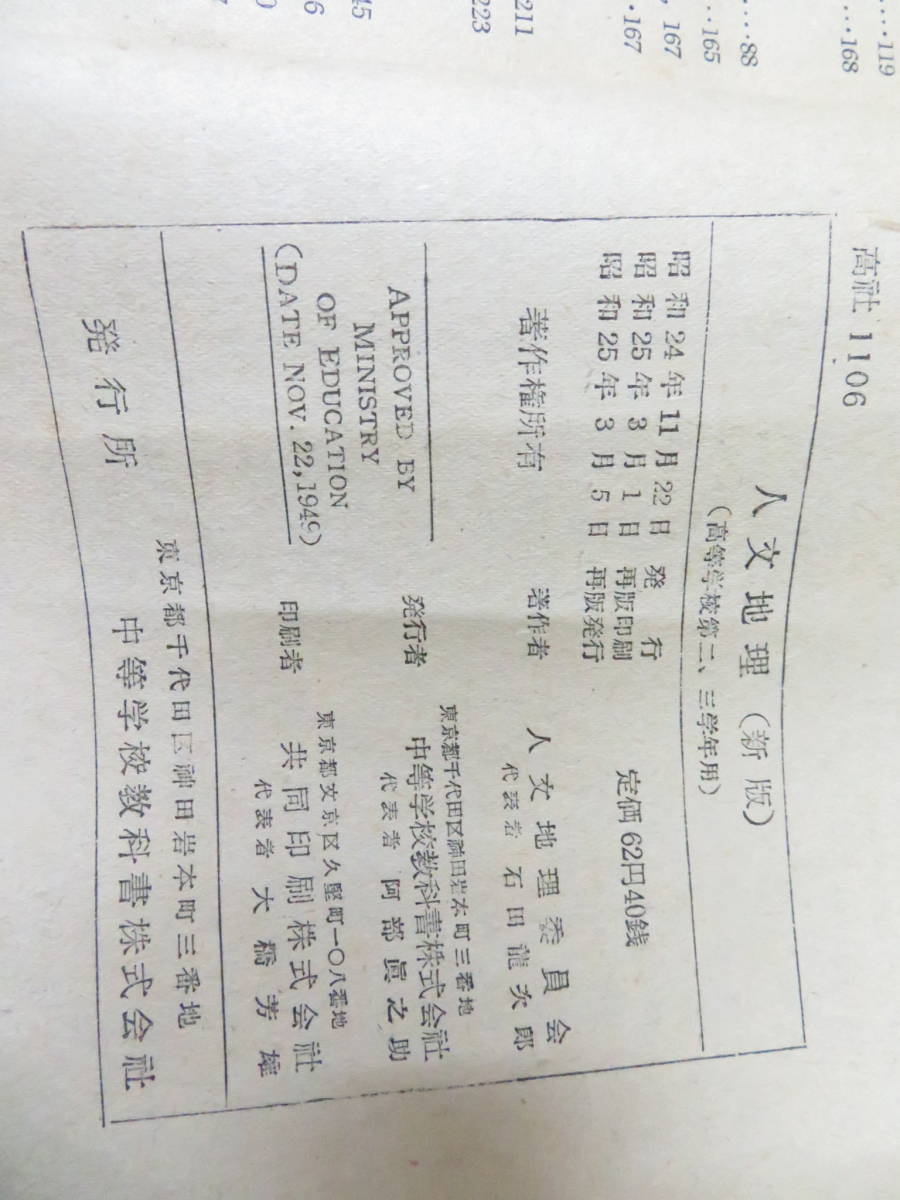 119
168
88
165
167
167
211
223
45
6
0
高社 1106
人文地理(新版)
(高等学校第二、三学年用)
昭和24年11月22日 発行
昭和25年3月1日 再版印刷
昭和25年3月5日 再版発行
定価62円40銭
著作権所有
著作者 人文地理委員会
代表者 石田龍次郎
APPROVED BY
MINISTRY
OF EDUCATION
(DATE NOV. 22, 1949)
東京都千代田区神田岩本町三番地
発行者 中等学校教科書株式会社
代表者 阿部眞之助
東京都文京区久堅町一〇八番地
印刷者 共同印刷株式会社
代表者 大橋芳雄
東京都千代田区神田岩本町三番地
発行所 中等学校教科書株式会社